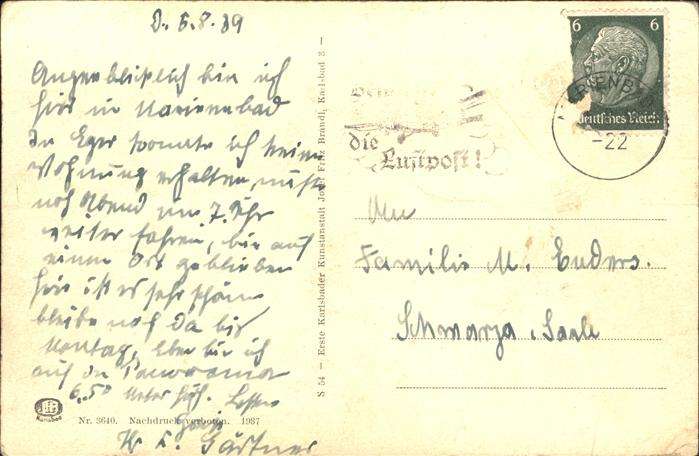 D. 6.8.39
Augenblicklich bin ich
hier in Marienbad
In Eger konnte ich keine
Wohnung erhalten, mußte
noch Abend um 7. Uhr
weiter fahren, bin auf
einem Ort geblieben
hier ist es sehr schön
bleibe noch da bis
Montag, Eben bin ich
auf der Panorama
6.50 Meter
Gärtner
Nr. 3640. Nachdruck verboten. 1937
S 54 — Erste Karlsbader Kunstanstalt Jos. Fritz Brandl, Karlsbad 3 —
die
Luftpost!
6 6
Deutsches Reich
-22
An
Familie M. Enders.
Schwarza, Saale